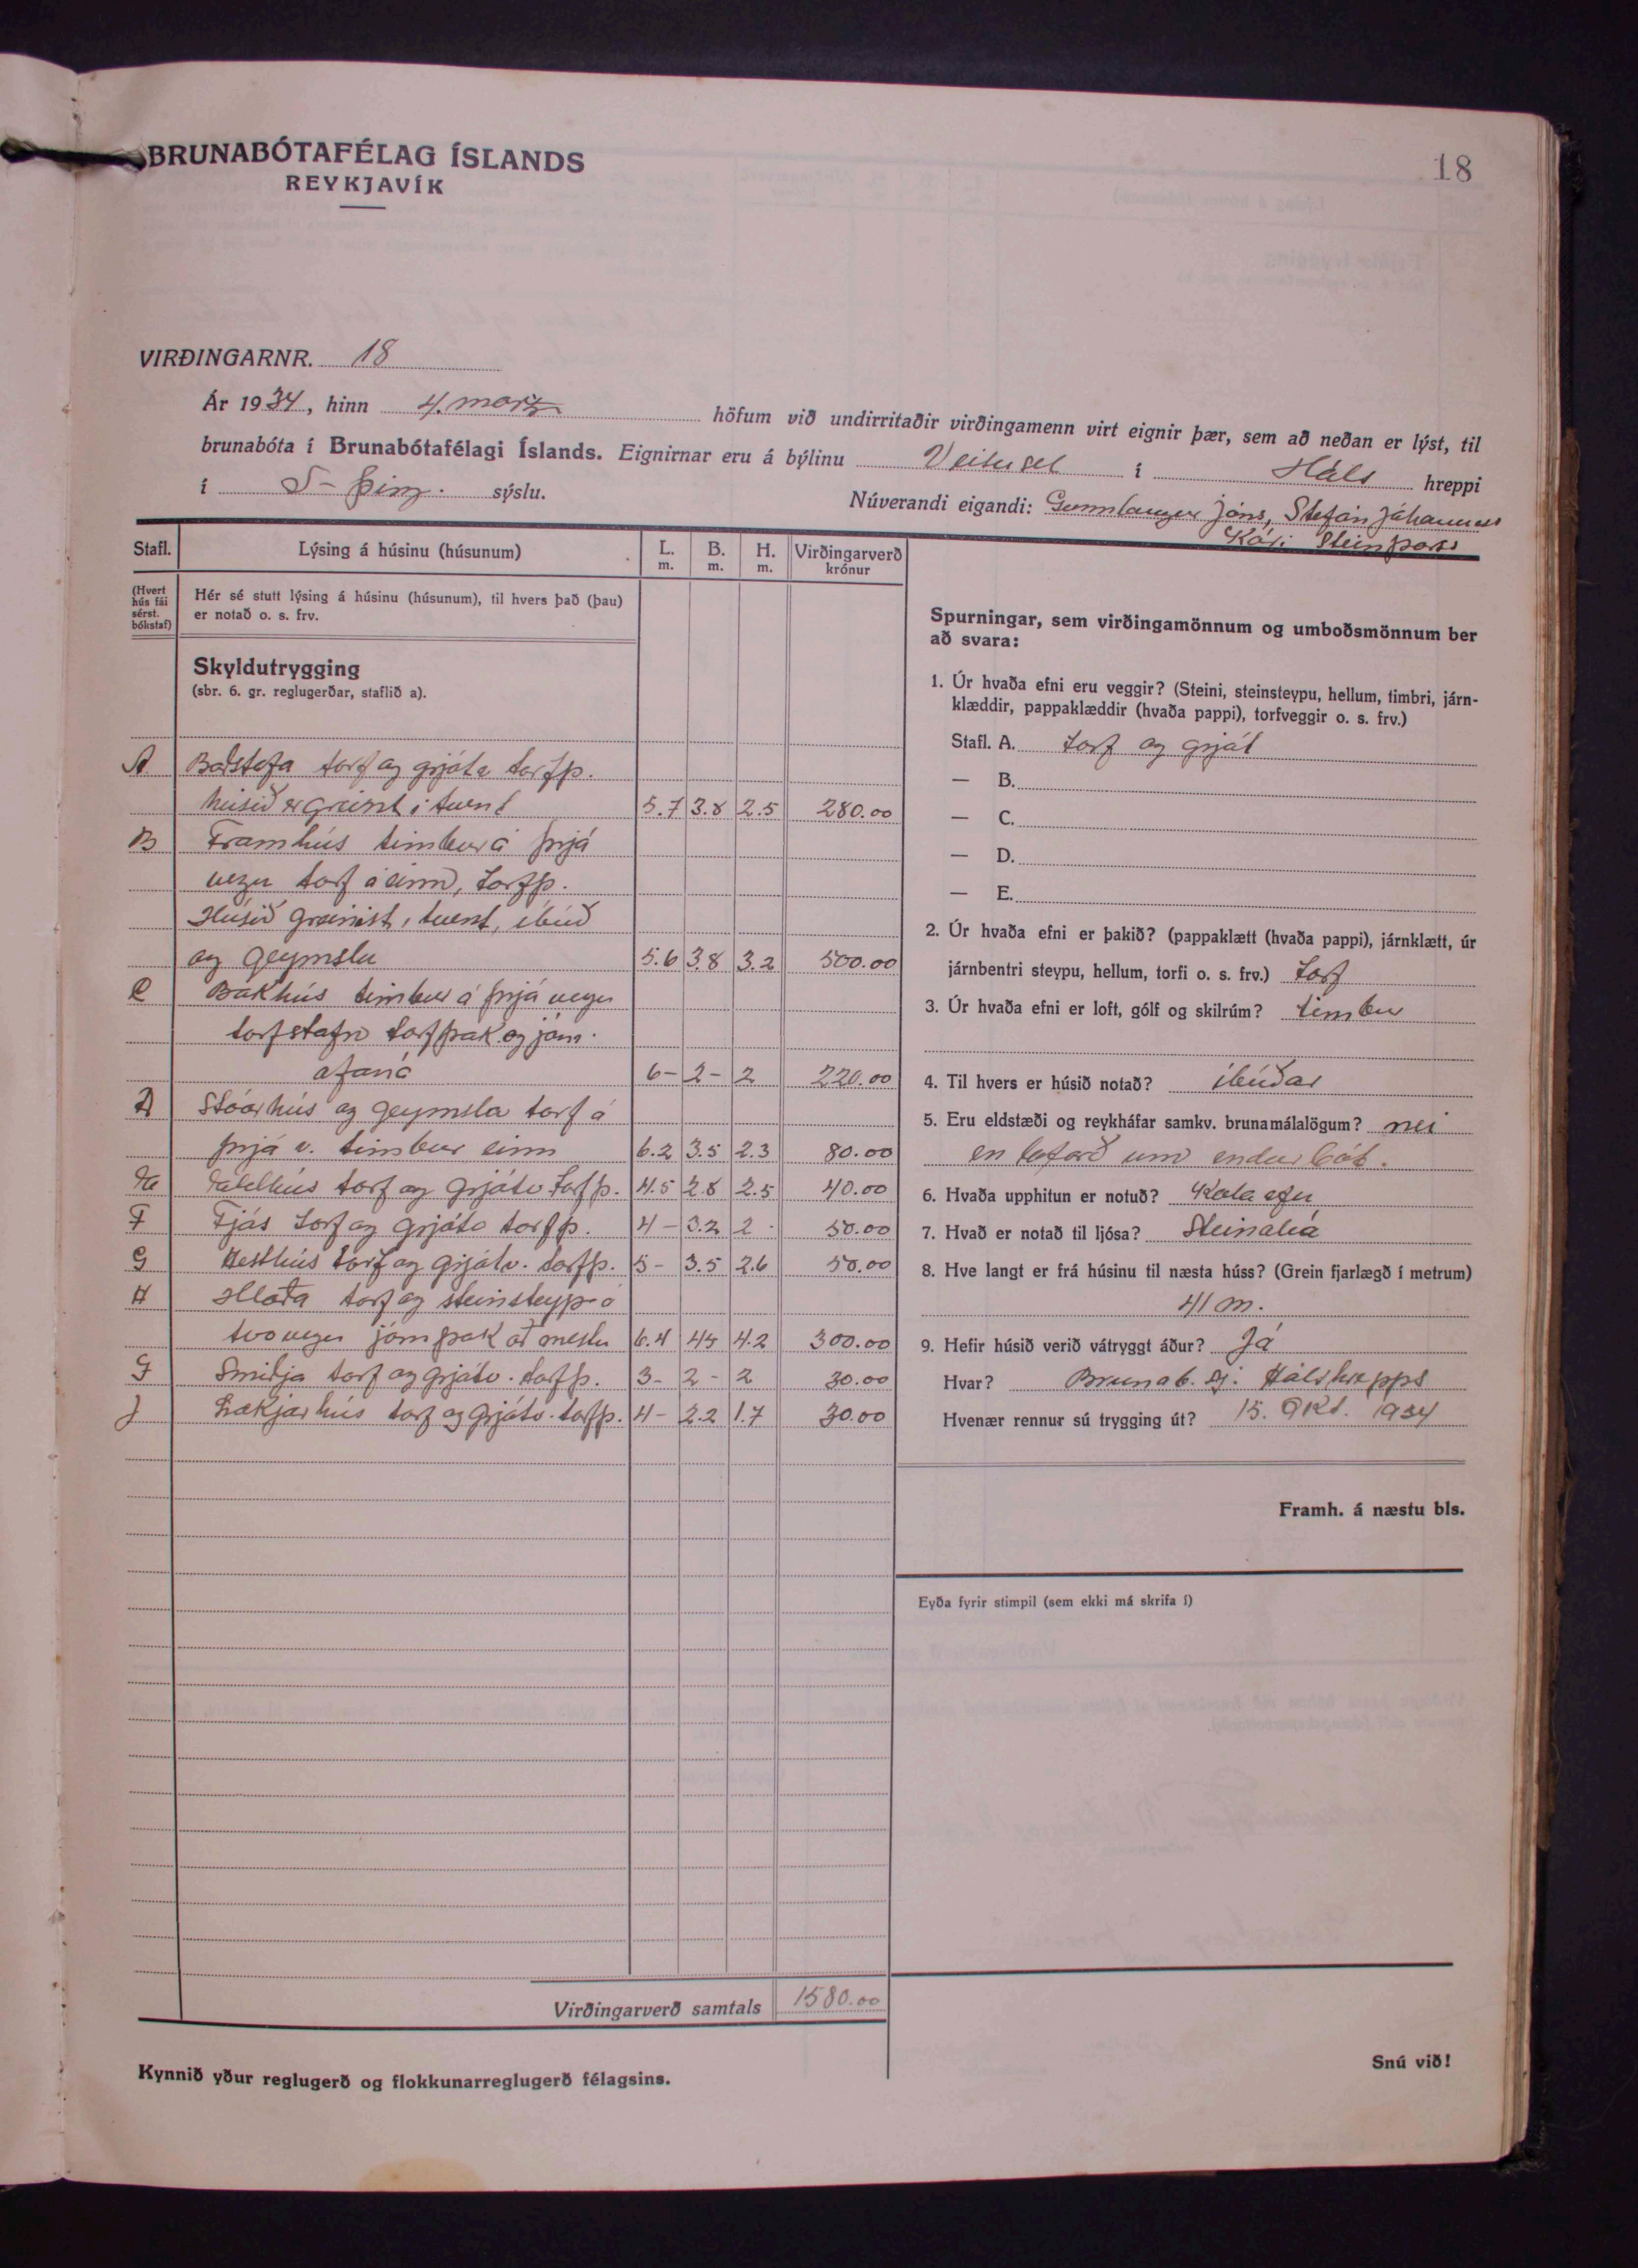 BRUNABÓTAFÉLAG ÍSLANDS
REYKJAVÍK
18
VIRÐINGARNR. 18
Ár 1934, hinn 4. marz höfum við undirritaðir virðingamenn virt eignir þær, sem að neðan er lýst, til
brunabóta í Brunabótafélagi Íslands. Eignirnar eru á býlinu Veisusel í Háls hreppi
í S-Þing. sýslu.
Núverandi eigandi: Gunnlaugur Jóns, Stefán Jóhanness
Kári Steinþórs
Stafl.
Lýsing á húsinu (húsunum)
L. m.
B. m.
H. m.
Virðingarverð krónur
(Hvert hús fái sérst. bókstaf)
Hér sé stutt lýsing á húsinu (húsunum), til hvers það (þau)
er notað o. s. frv.
Skyldutrygging
(sbr. 6. gr. reglugerðar, staflið a).
A Baðstofa torf og grjótv torfþ.
húsið er greint í tvent 5.7 3.8 2.5 280.00
B Framhús timbur á þrjá
vegu torf á einn, torfþ.
Húsið greinist í tvent, íbúð
og geymslu 5.6 3.8 3.2 500.00
C Bakhús timbur á þrjá vegu
torfstafn torfþak og járn
ofaná 6- 2- 2 220.00
D Stóarhús og geymsla torf á
þrjá v. timbur einn 6.2 3.5 2.3 80.00
torf og grjótv torfþ. 4.5 2.8 2.5 40.00
F Fjós torf og grjótv torfþ. 4- 3.2 2. 50.00
G Hesthús torf og grjótv. torfþ. 5- 3.5 2.6 50.00
H Hlaða torf og steinsteyp á
tvo vegu járnþak að mestu 6.4 45 4.2 300.00
Smiðja torf og grjótv. torfþ. 3- 2- 2 30.00
J Lækjarhús torf og grjótv. torfþ. 4- 2.2 1.7 30.00
Virðingarverð samtals 1580.00
Kynnið yður reglugerð og flokkunarreglugerð félagsins.
Spurningar, sem virðingamönnum og umboðsmönnum ber
að svara:
1. Úr hvaða efni eru veggir? (Steini, steinsteypu, hellum, timbri, járn-
klæddir, pappaklæddir (hvaða pappi), torfveggir o. s. frv.)
Stafl. A. torf og grjót
— B.
— C.
— D.
— E.
2. Úr hvaða efni er þakið? (pappaklætt (hvaða pappi), járnklætt, úr
járnbentri steypu, hellum, torfi o. s. frv.) torf
3. Úr hvaða efni er loft, gólf og skilrúm? timbur
4. Til hvers er húsið notað? íbúðar
5. Eru eldstæði og reykháfar samkv. brunamálalögum? nei
en loforð um endurbót.
6. Hvaða upphitun er notuð? Kola ofn
7. Hvað er notað til ljósa? Steinolía
8. Hve langt er frá húsinu til næsta húss? (Grein fjarlægð í metrum)
41 m.
9. Hefir húsið verið vátryggt áður? Já
Hvar? Brunab. sj. Hálshrepps
Hvenær rennur sú trygging út? 15. Okt. 1934
Framh. á næstu bls.
Eyða fyrir stimpil (sem ekki má skrifa í)
Snú við!